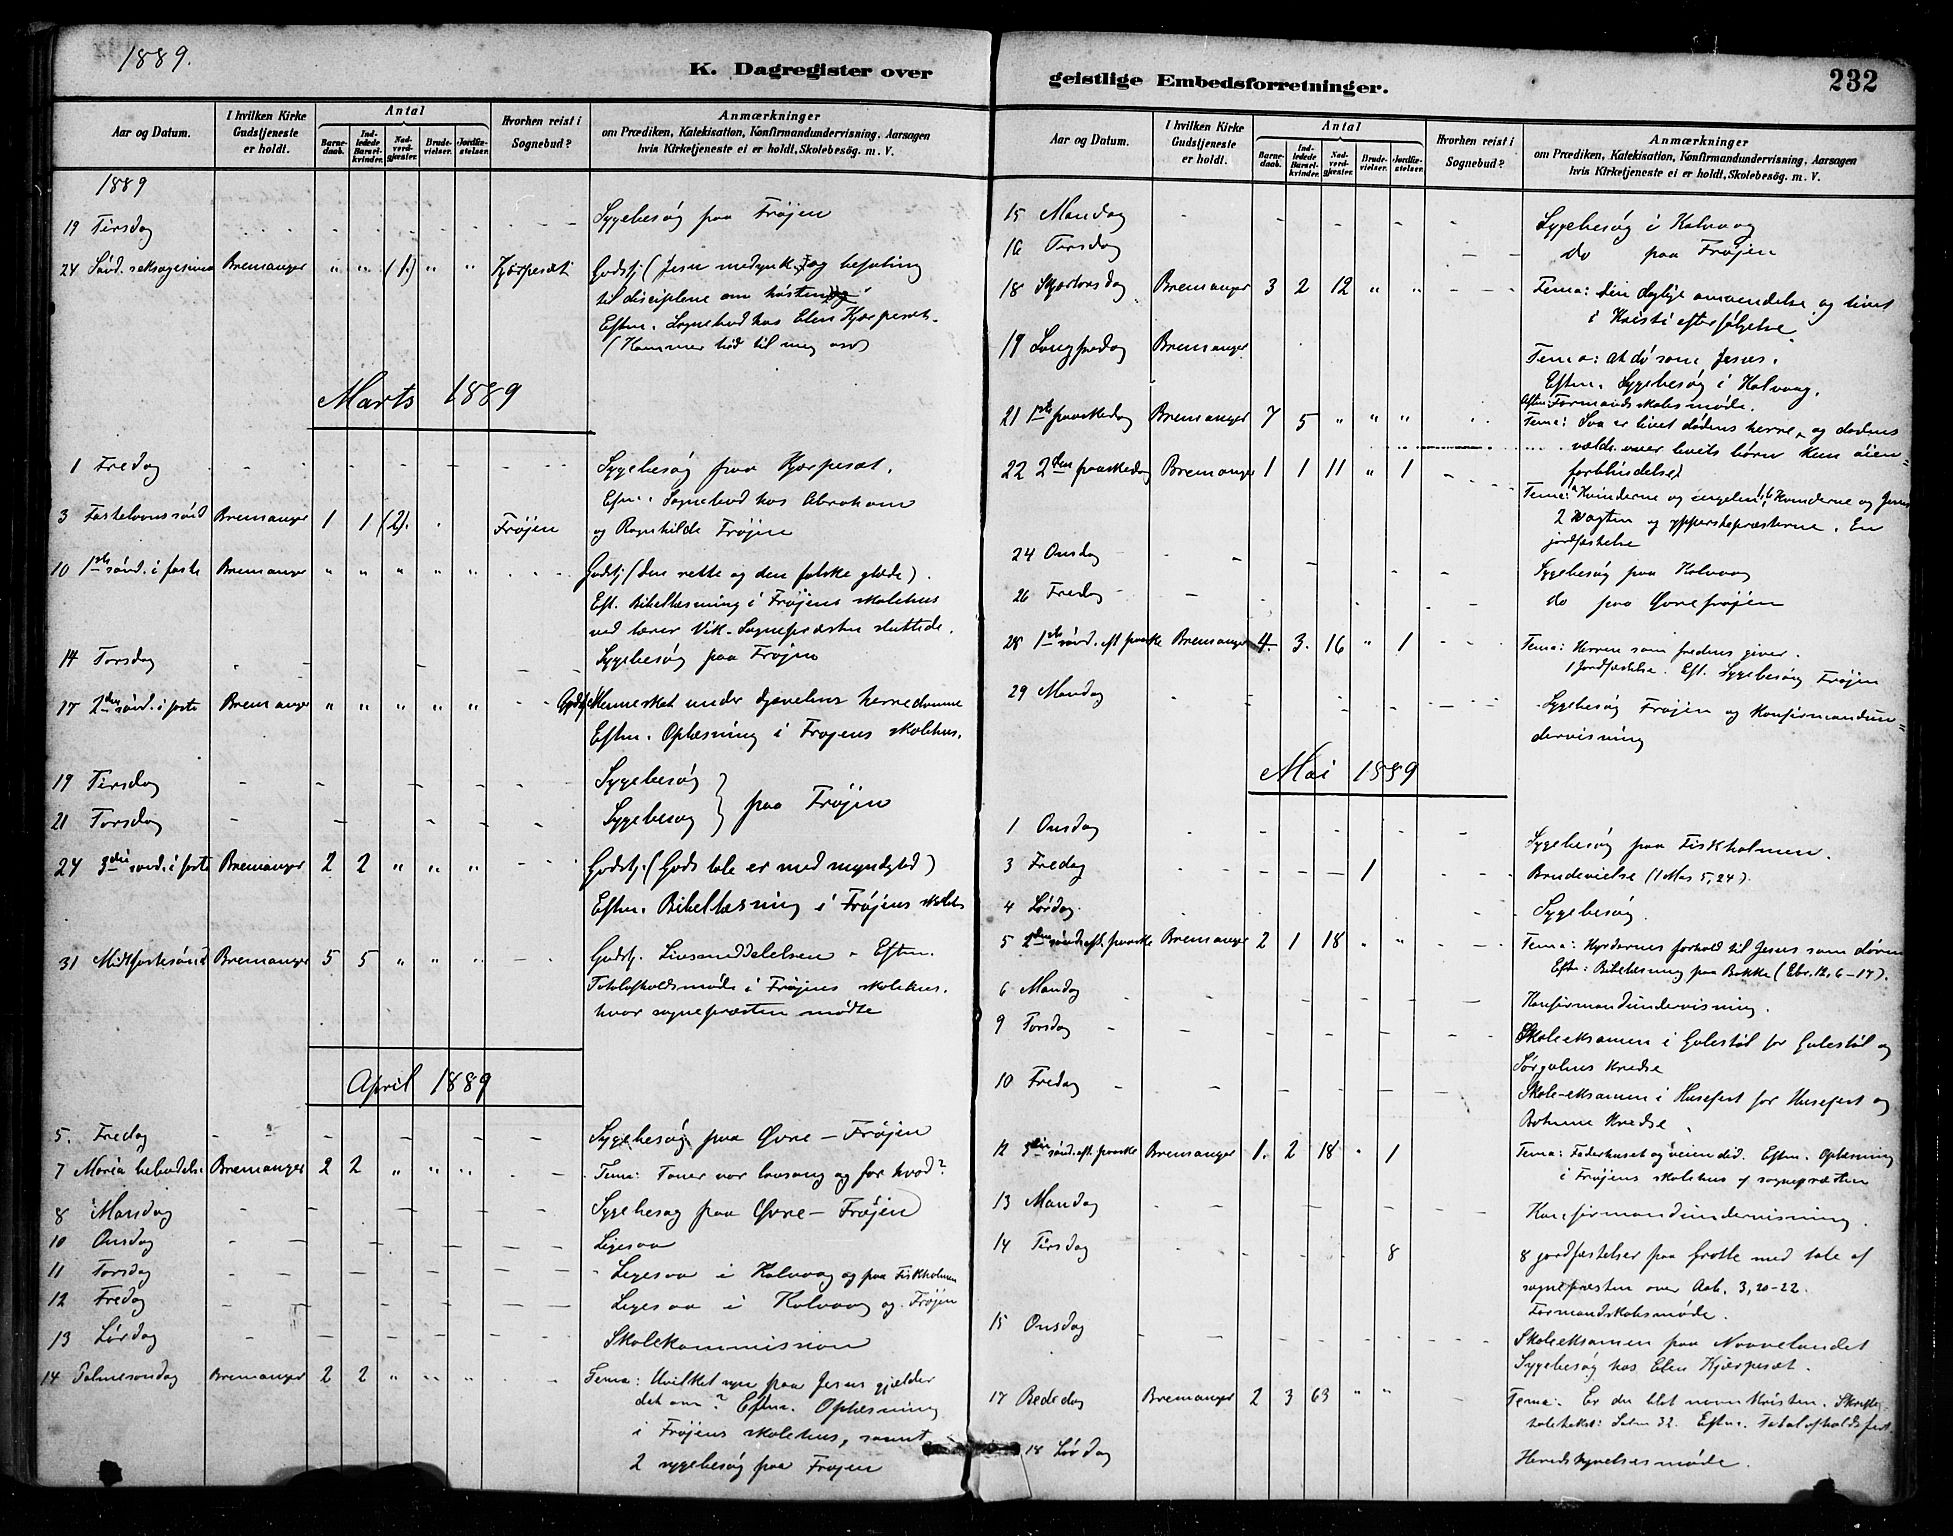 1889.
K. Dagregister over
Aar og Datum.
I hvilken Kirke Gudstjeneste er holdt.
Antal
Barnedaab.
Indledede Barselkvinder.
Nadverdgjester.
Brudevielser.
Jordfæstelser.
Hvorhen reist i Sognebud?
Anmærkninger
om Prædiken, Katekisation, Konfirmandundervisning, Aarsagen
hvis Kirketjeneste ei er holdt, Skolebesøg. m. V.
1889
19 Tirsdag Sygebesøg paa Frøjen
24 Sønd. seksagesima Bremanger " " (1.) " " Kjerpesæt Gudstj. (Jesu medynk og befaling
til disciplene om høsten
Eftm. Sognebud hos Elen Kjærpesæt.
(Kommer hid til mig osv)
Marts 1889
1 Fredag Sygebesøg paa Kjærpesæt.
Eftm. Sognebud hos Abraham
3 Fastelavnssønd Bremanger 1 1 (2). Frøjen og Ragnhilde Frøjen
10 1ste sønd. i faste Bremanger " " " " " Gudstj (den rette og den falske glæde).
Eft. Bibellæsning i Frøjens skolehus
ved lærer Vik. Sognepræsten sluttede.
14 Torsdag Sygebesøg paa Frøjen
17 2den sønd. i faste Bremanger " " " " " Gudstj. Mennesket under djævelens herredømme
Eftm. Oplæsning i Frøjens skolehus.
19 Tirsdag Sygebesøg
21 Torsdag Sygebesøg } paa Frøjen
24 3die sønd. i faste Bremanger 2 2 " " " Gudstj. (Guds tale er med myndighed)
Eftm. Bibellæsning i Frøjens skolehus
31 Midfastesønd Bremanger 5 5 " " " Gudstj. Livsmeddelelsen - Eftm.
Totalafholdsmøde i Frøjens skolehus.
hvor sognepræsten mødte
April 1889
5. Fredag Sygebesøg paa Øvre-Frøjen
7 Maria bebudelse Bremanger 2 2 " " " Tema: Toner vor lovsang og for hvad?
8 Mandag Sygebesøg paa Øvre-Frøjen
10 Onsdag Ligesaa
11 Torsdag Ligesaa i Kalvaag og paa Fiskholmen
12 Fredag Ligesaa i Kalvaag og Frøjen
13 Lørdag Skolekommission
14 Palmesøndag Bremanger 2 2 " " " Tema: Hvilket syn paa Jesus gjælder
det om? Eftm. Oplæsning
i Frøjens skolehus, samt
2 sygebesøg paa Frøjen
geistlige Embedsforretninger.
232
Aar og Datum.
I hvilken Kirke Gudstjeneste er holdt.
Antal
Barnedaab.
Indledede Barselkvinder.
Nadverdgjester.
Brudevielser.
Jordfæstelser.
Hvorhen reist i Sognebud?
Anmærkninger
om Prædiken, Katekisation, Konfirmandundervisning, Aarsagen
hvis Kirketjeneste ei er holdt, Skolebesøg. m. V.
15 Mandag Sygebesøg i Kalvaag
16 Tirsdag do paa Frøjen
18 Skjærtorsdag Bremanger 3 2 12 " " Tema: Den daglige omvendelse og livet
i Kristi efterfølgelse
19 Langfredag Bremanger Tema: at dø som Jesus.
Eftm. Sygebesøg i Kalvaag.
Eftm: Formandskabsmøde.
21 1ste paaskedag Bremanger 7 5 " " " Tema: Saa er livet dødens herre, og dødens
vælde over livets børn kun øien-
forblindelse
22 2den paaskedag Bremanger 1 1 11 " 1 Tema: Kvinderne og engelen, Kvinderne og Jesus
2 Vagten og ypperstepræsterne. En
jordfæstelse
24 Onsdag Sygebesøg paa Kalvaag
26 Fredag do paa Øvrefrøjen
28 1ste sønd. eft paaske Bremanger 4. 3. 16 " 1 Tema: Herren som fredens giver.
1 Jordfæstelse. Eft. Sygebesøg Frøjen
29 Mandag Sygebesøg Frøjen og Konfirmandun-
dervisning
Mai 1889
1 Onsdag Sygebesøg paa Fiskholmen.
3 Fredag 1 Brudevielse (1 Mos 5,24).
4 Lørdag Sygebesøg.
5 2den sønd. eft. paaske Bremanger 2 1 18 " " Tema: Hyrdernes forhold til Jesus som døren
Eftm: Bibellæsning paa Bakke (Ebr. 12, 6-17).
6 Mandag Konfirmandundervisning.
9 Torsdag Skoleeksamen i Gulestøl for Gulestøl og
Sørgulens Kredse
10 Fredag Skole-eksamen i Husefest for Husefest og
Botnene Kredse.
12 3die sønd. eft. paaske Bremanger 1. 2 18 " 1 Tema: Faderhuset og veien did. Eftm. Oplæsning
i Frøjens skolehus af sognepræsten
13 Mandag Konfirmandundervisning.
14 Tirsdag 8 8 jordfæstelser paa Grotle med tale af
sognepræsten over Aab. 3, 20-22.
Formandskabsmøde.
15 Onsdag Skoleeksamen paa Novelandet
Sygebesøg hos Elen Kjærpesæt.
17 Bededag Bremanger 2 3 63 " " Tema: Er du blot navnkristen. Skrifte-
taletekst: Salm 32. Eftm. Totalafholdsfest.
18 Lørdag Herredsstyrelsesmøde.